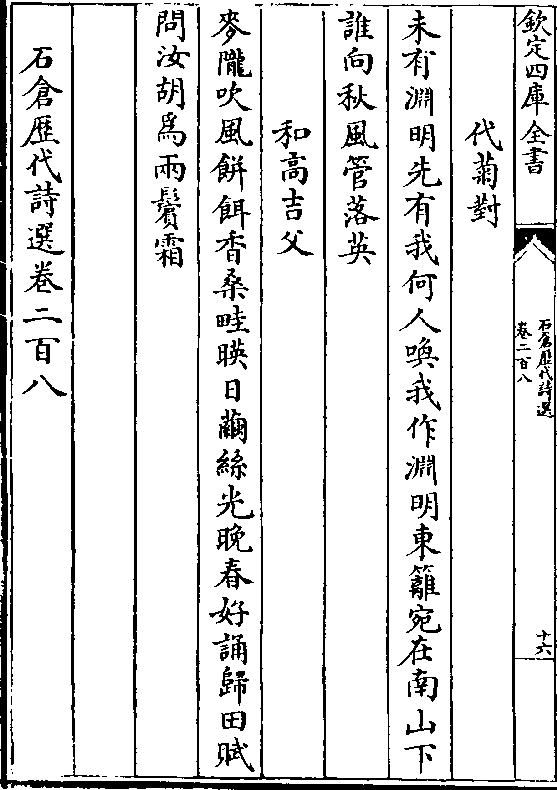 欽定四庫全書
石倉歴代詩選
卷二百八
十六
代菊對
未有淵明先有我何人喚我作淵明東籬宛在南山下
誰向秋風管落英
和高吉父
麥隴吹風餅餌香桑畦暎日繭絲光晚春好誦歸田賦
問汝胡為兩鬢霜
石倉歴代詩選卷二百八